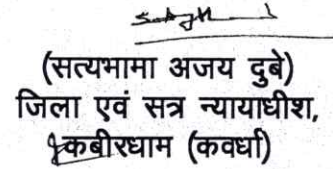 (सत्यभामा अजय दुबे)
जिला एवं सत्र न्यायाधीश,
कबीरधाम (कवर्धा)